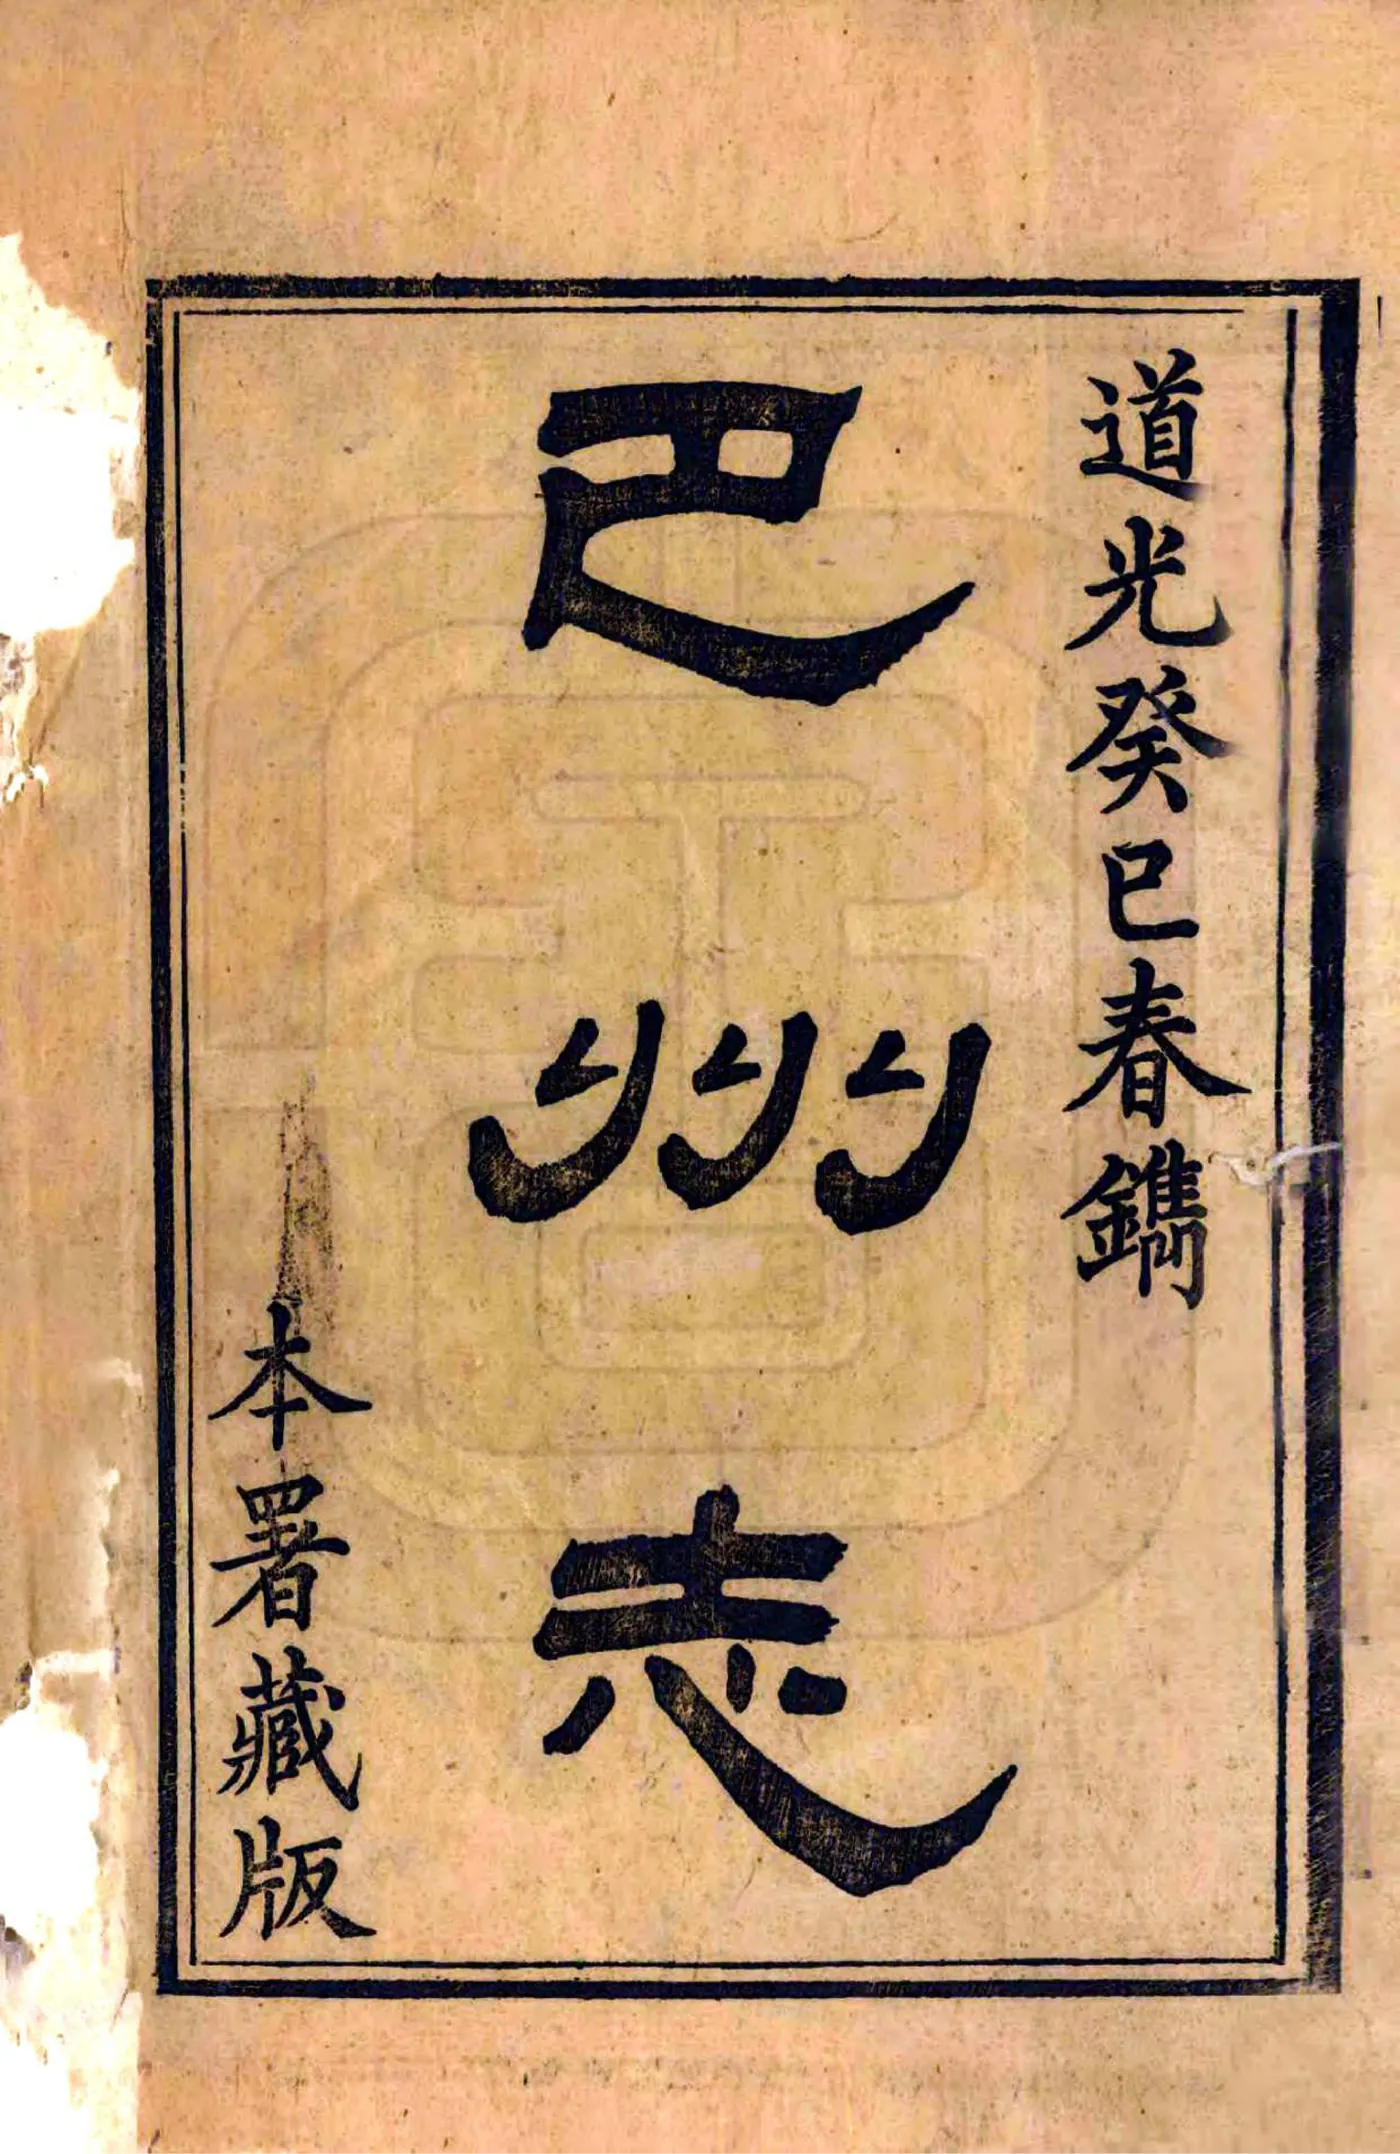 道光癸巳春鐫
巴州志
本署藏版